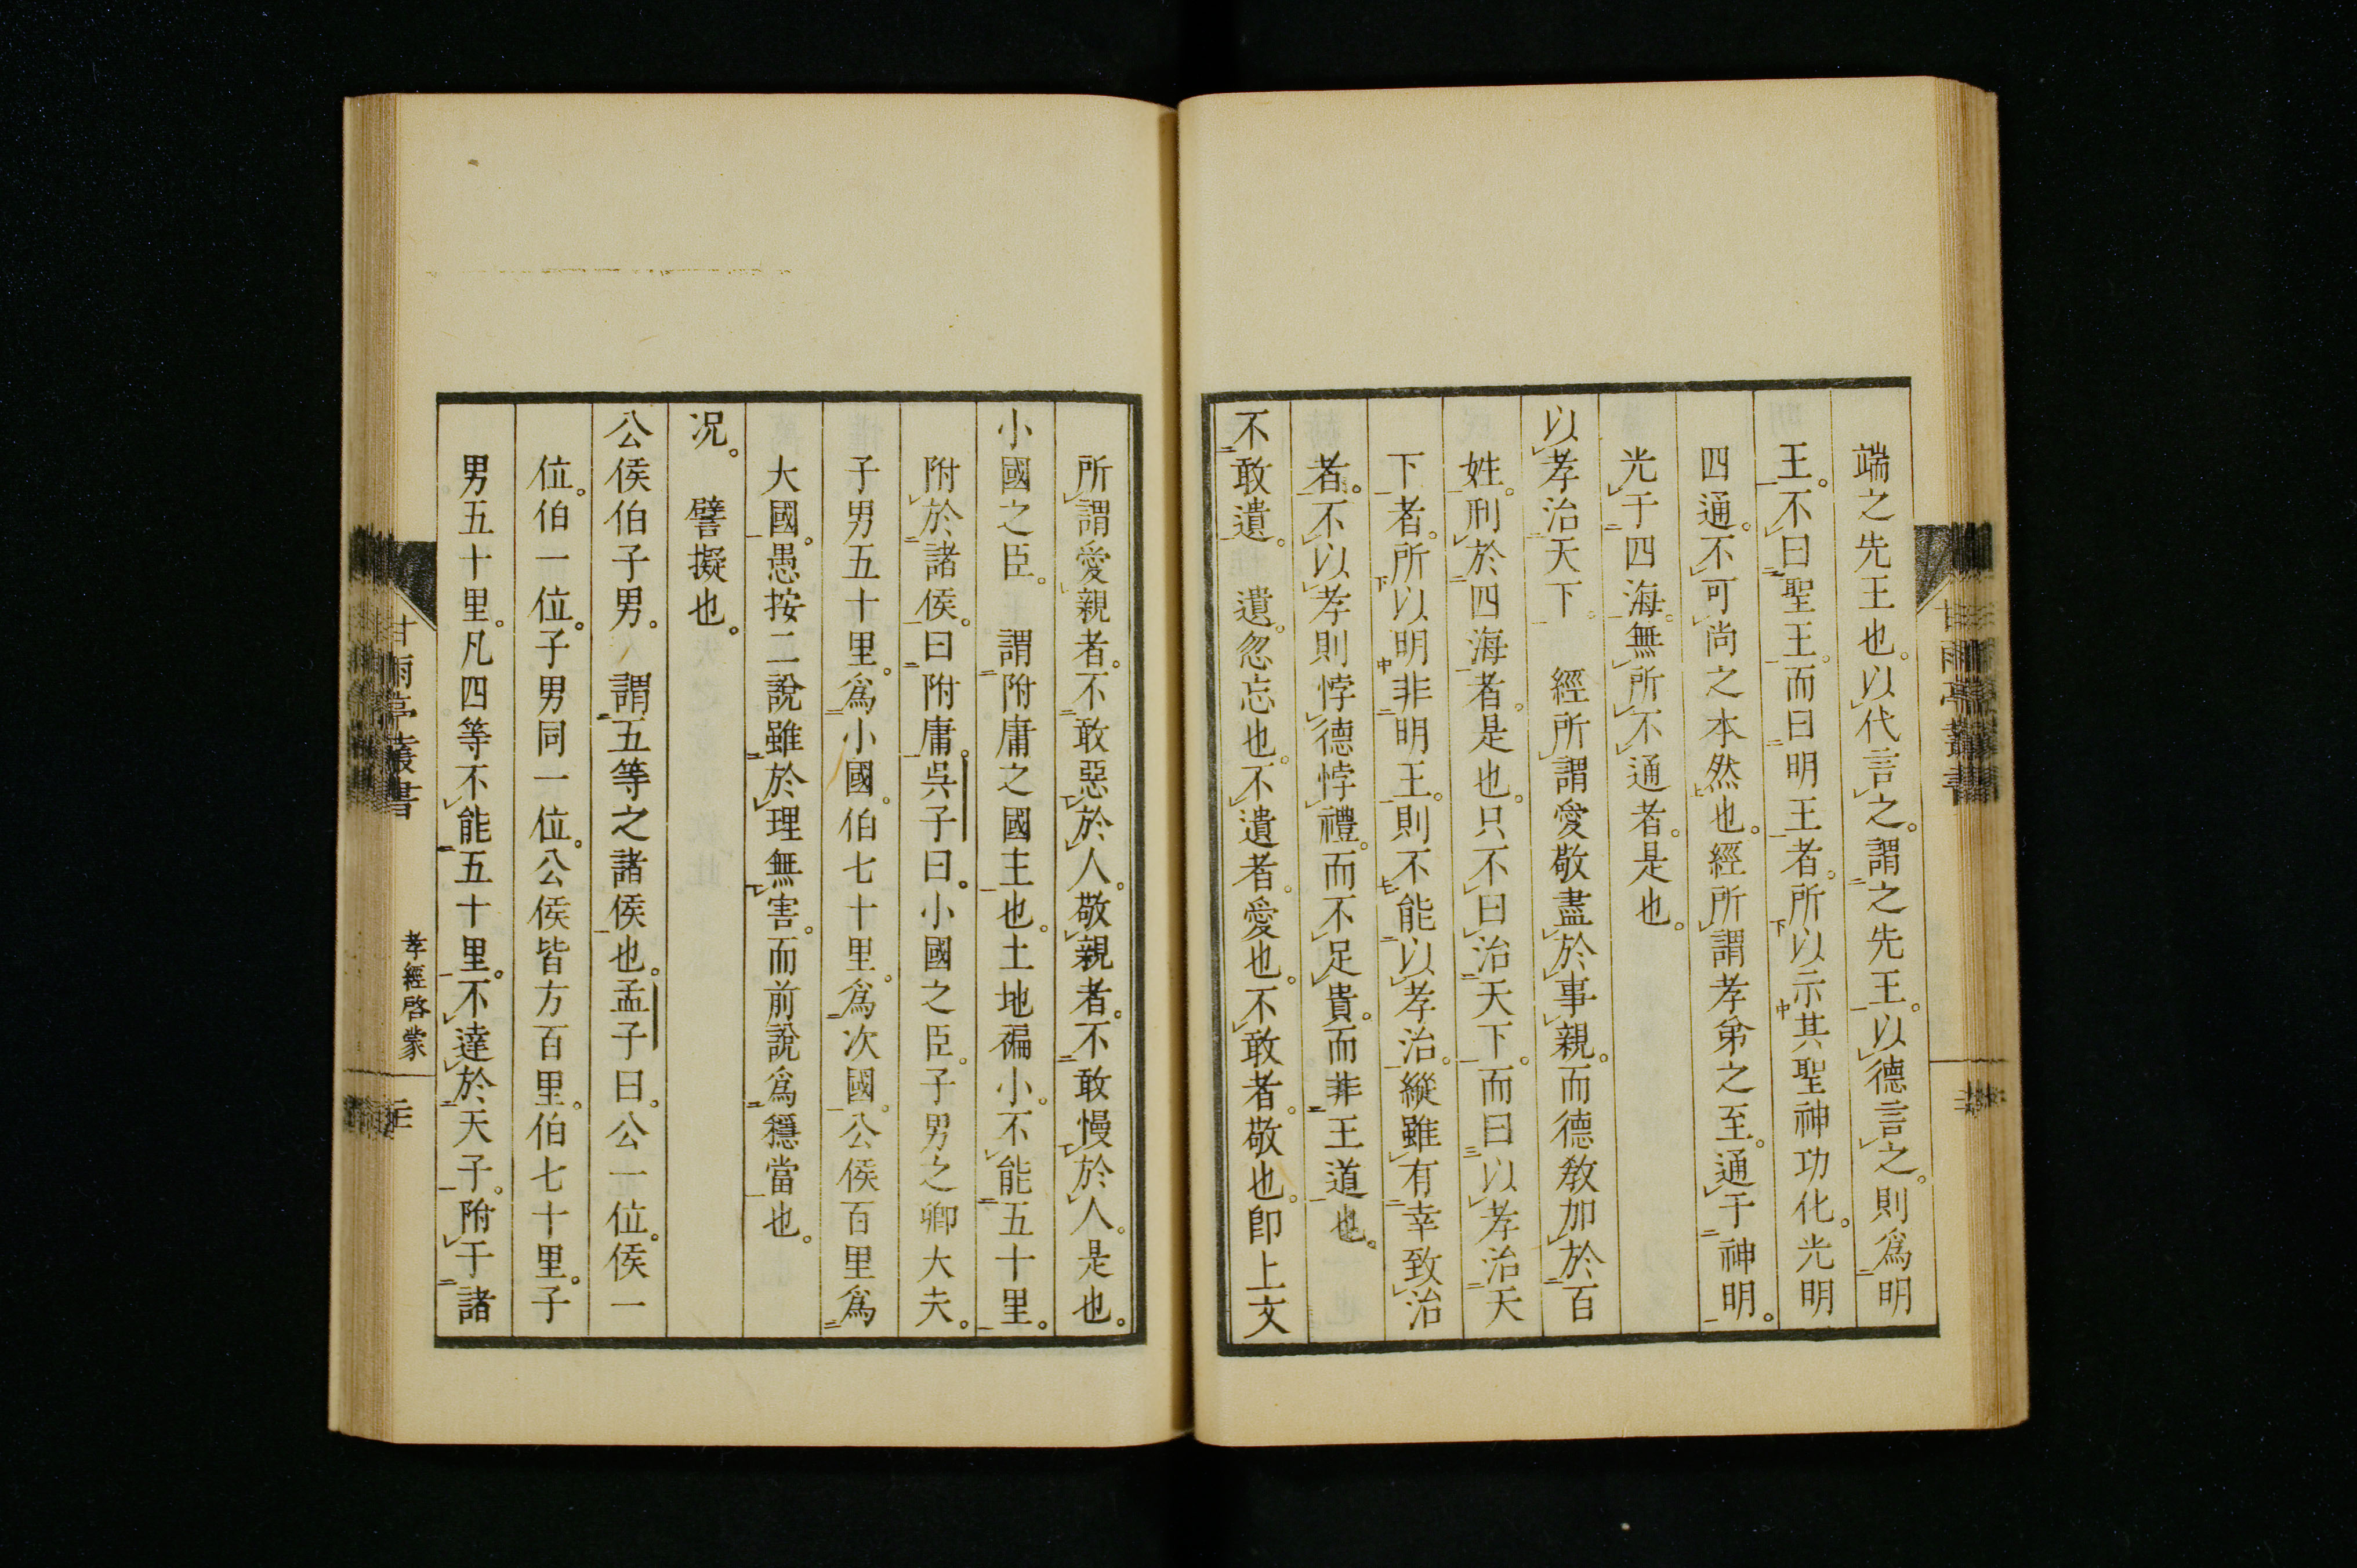 端之先王也。以代言之。謂之先王。以德言之。則爲明
王。不曰聖王。而曰明王者。所以示其聖神功化。光明
四通。不可尚之本然也。經所謂孝弟之至。通于神明。
光于四海。無所不通者。是也。
以孝治天下。 經所謂愛敬盡於事親。而德敎加於百
姓。刑於四海者。是也。只不曰治天下。而曰以孝治天
下者。所以明非明王。則不能以孝治。縱雖有幸致治
者。不以孝則悖德悖禮。而不足貴。而非王道也。
不敢遺。 遺。忽忘也。不遺者。愛也。不敢者。敬也。卽上文
所謂愛親者。不敢惡於人。敬親者。不敢慢於人。是也。
小國之臣。 謂附庸之國主也。土地褊小。不能五十里。
附於諸侯。曰附庸。吳子曰。小國之臣。子男之卿大夫。
子男五十里。爲小國。伯七十里。爲次國。公侯百里爲
大國。愚按二說雖於理無害。而前說爲穩當也。
況。 譬擬也。
公侯伯子男。 謂五等之諸侯也。孟子曰。公一位。侯一
位。伯一位。子男同一位。公侯皆方百里。伯七十里。子
男五十里。凡四等不能五十里。不達於天子。附于諸
甘雨亭叢書
孝經啓蒙